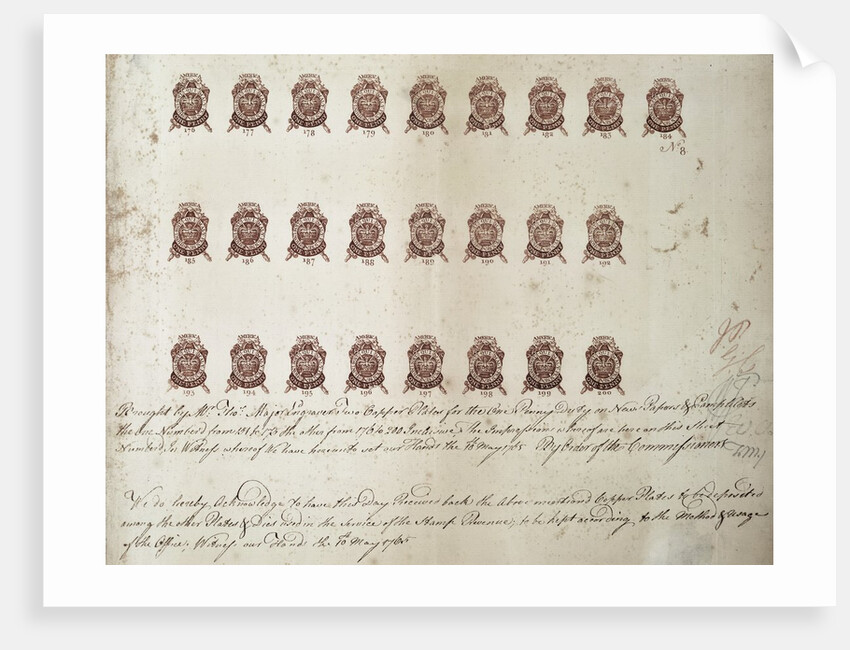 AMERICA AMERICA AMERICA AMERICA AMERICA AMERICA AMERICA AMERICA AMERICA
ONE PENNY ONE PENNY ONE PENNY ONE PENNY ONE PENNY ONE PENNY ONE PENNY ONE PENNY ONE PENNY
176 177 178 179 180 181 182 183 184
No 8
AMERICA AMERICA AMERICA AMERICA AMERICA AMERICA AMERICA AMERICA
ONE PENNY ONE PENNY ONE PENNY ONE PENNY ONE PENNY ONE PENNY ONE PENNY ONE PENNY
185 186 187 188 189 190 191 192
AMERICA AMERICA AMERICA AMERICA AMERICA AMERICA AMERICA AMERICA
ONE PENNY ONE PENNY ONE PENNY ONE PENNY ONE PENNY ONE PENNY ONE PENNY ONE PENNY
193 194 195 196 197 198 199 200
Brought by Mr. Thos. Major Engraver Two Copper Plates for the One Penny Duty on News Papers & Pamphlets
the One Numberd from 151 to 175 the other from 176 to 200 Inclusive The Impressions whereof are here on this Sheet
Numberd, In Witness whereof We have hereunto set our Hands the 10 May 1765 By Order of the Commissioners
We do hereby Acknowledge to have this day Received back the Above mentiond Copper Plates to be deposited
among the other Plates & Dies used in the Service of the Stamp Revenue, to be kept according to the Method & Usage
of the Office; Witness our Hands the 10 May 1765